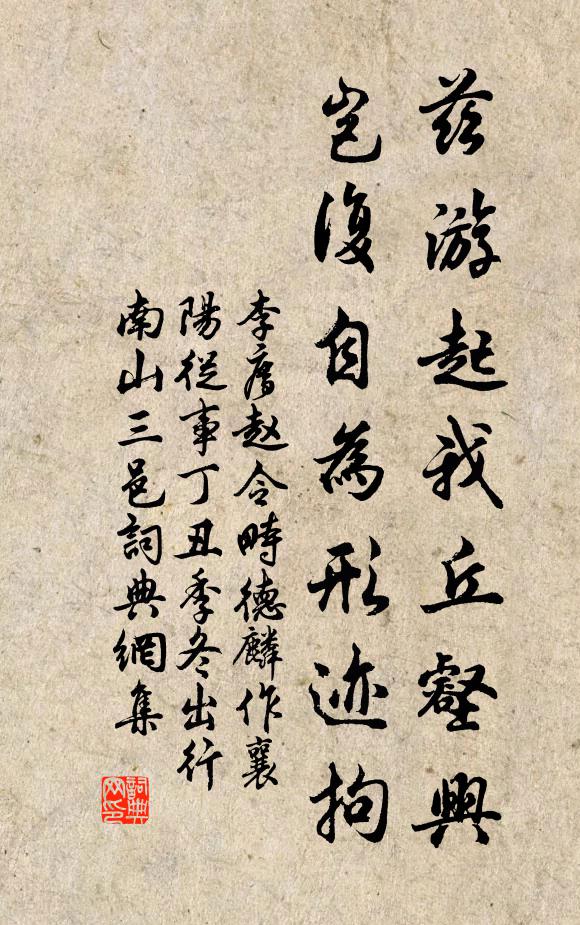 茲游起我丘壑興
豈復自為形迹拘
李廌赵令畤德麟作襄
陽從事丁丑季冬出行
南山三邑詞典網集
詞典网印